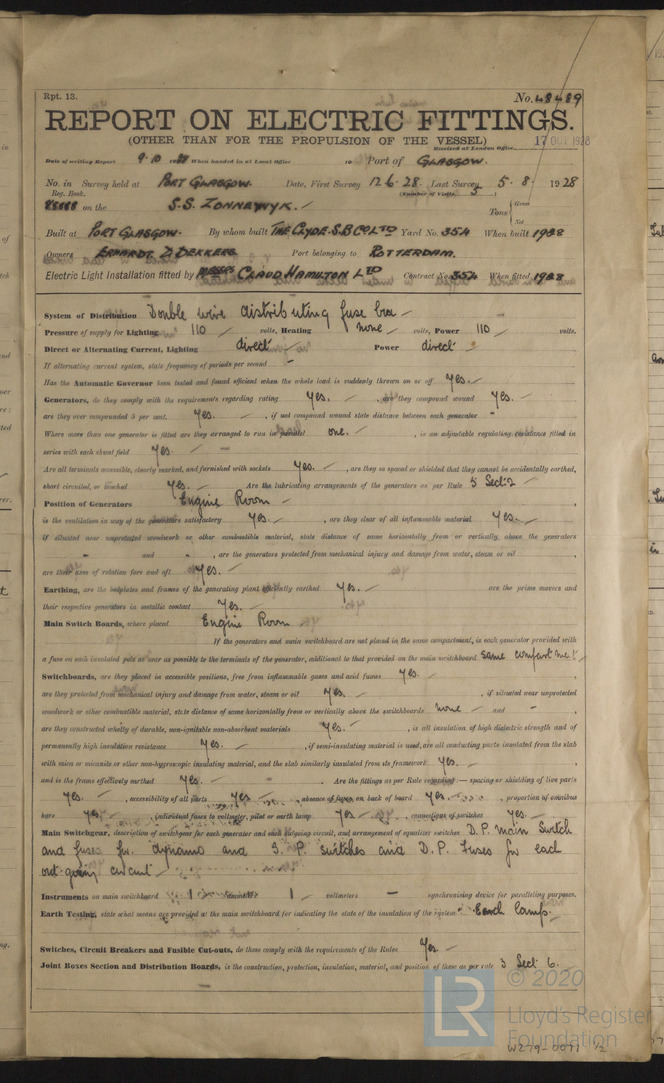 Rpt. 13.
No. 48489
REPORT ON ELECTRIC FITTINGS.
(OTHER THAN FOR THE PROPULSION OF THE VESSEL)
17 OCT 1928
Received at London Office
Date of writing Report 9.10 When handed in at Local Office 10 Port of GLASGOW.
No. in Survey held at PORT GLASGOW. Date, First Survey 12.6.28. Last Survey 5.8. 1928
Reg. Book. (Number of Visits 5)
on the S.S. ZONNEWYK. Tons { Gross Net
Built at PORT GLASGOW. By whom built THE CLYDE.S.B CO LTD Yard No. 354 When built 1928
Owners ERHARDT & DEKKERS Port belonging to ROTTERDAM.
Electric Light Installation fitted by MESSRS CLAUD HAMILTON LTD Contract No. 354 When fitted 1928
System of Distribution Double wire distributing fuse box
Pressure of supply for Lighting 110 volts, Heating none volts, Power 110 volts.
Direct or Alternating Current, Lighting direct Power direct
If alternating current system, state frequency of periods per second -
Has the Automatic Governor been tested and found efficient when the whole load is suddenly thrown on or off Yes.
Generators, do they comply with the requirements regarding rating Yes. , are they compound wound Yes.
are they over compounded 5 per cent. Yes. , if not compound wound state distance between each generator -
Where more than one generator is fitted are they arranged to run in parallel one. , is an adjustable regulating resistance fitted in
series with each shunt field Yes.
Are all terminals accessible, clearly marked, and furnished with sockets Yes. , are they so spaced or shielded that they cannot be accidentally earthed,
short circuited, or touched Yes. Are the lubricating arrangements of the generators as per Rule 5 Sect: 2
Position of Generators Engine Room
is the ventilation in way of the generators satisfactory Yes. , are they clear of all inflammable material Yes.
if situated near unprotected woodwork or other combustible material, state distance of same horizontally from or vertically above the generators
- and - , are the generators protected from mechanical injury and damage from water, steam or oil
are their axes of rotation fore and aft Yes.
Earthing, are the bedplates and frames of the generating plant efficiently earthed Yes. are the prime movers and
their respective generators in metallic contact Yes.
Main Switch Boards, where placed Engine Room
If the generators and main switchboard are not placed in the same compartment, is each generator provided with
a fuse on each insulated pole as near as possible to the terminals of the generator, additional to that provided on the main switchboard same compartment
Switchboards, are they placed in accessible positions, free from inflammable gases and acid fumes Yes.
are they protected from mechanical injury and damage from water, steam or oil Yes. , if situated near unprotected
woodwork or other combustible material, state distance of same horizontally from or vertically above the switchboards none and -
are they constructed wholly of durable, non-ignitable non-absorbent materials Yes. , is all insulation of high dielectric strength and of
permanently high insulation resistance Yes. , if semi-insulating material is used, are all conducting parts insulated from the slab
with mica or micanite or other non-hygroscopic insulating material, and the slab similarly insulated from its framework Yes.
and is the frame effectively earthed Yes. Are the fittings as per Rule regarding:— spacing or shielding of live parts
Yes. , accessibility of all parts Yes , absence of fuses on back of board Yes. , proportion of omnibus
bars Yes , individual fuses to voltmeter, pilot or earth lamp Yes , connections of switches Yes.
Main Switchgear, description of switchgear for each generator and each outgoing circuit, and arrangement of equalizer switches D.P. main Switch
and fuses for dynamo and S.P. switches and D.P. Fuses for each
out-going circuit
Instruments on main switchboard 1 ammeters 1 voltmeters - synchronising device for paralleling purposes.
Earth Testing, state what means are provided at the main switchboard for indicating the state of the insulation of the system Earth lamp.
Switches, Circuit Breakers and Fusible Cut-outs, do these comply with the requirements of the Rules Yes.
Joint Boxes Section and Distribution Boards, is the construction, protection, insulation, material, and position of these as per rule 3 Sect: 6.
© 2020
LR
Lloyd's Register
Foundation
W279-0071 1/2